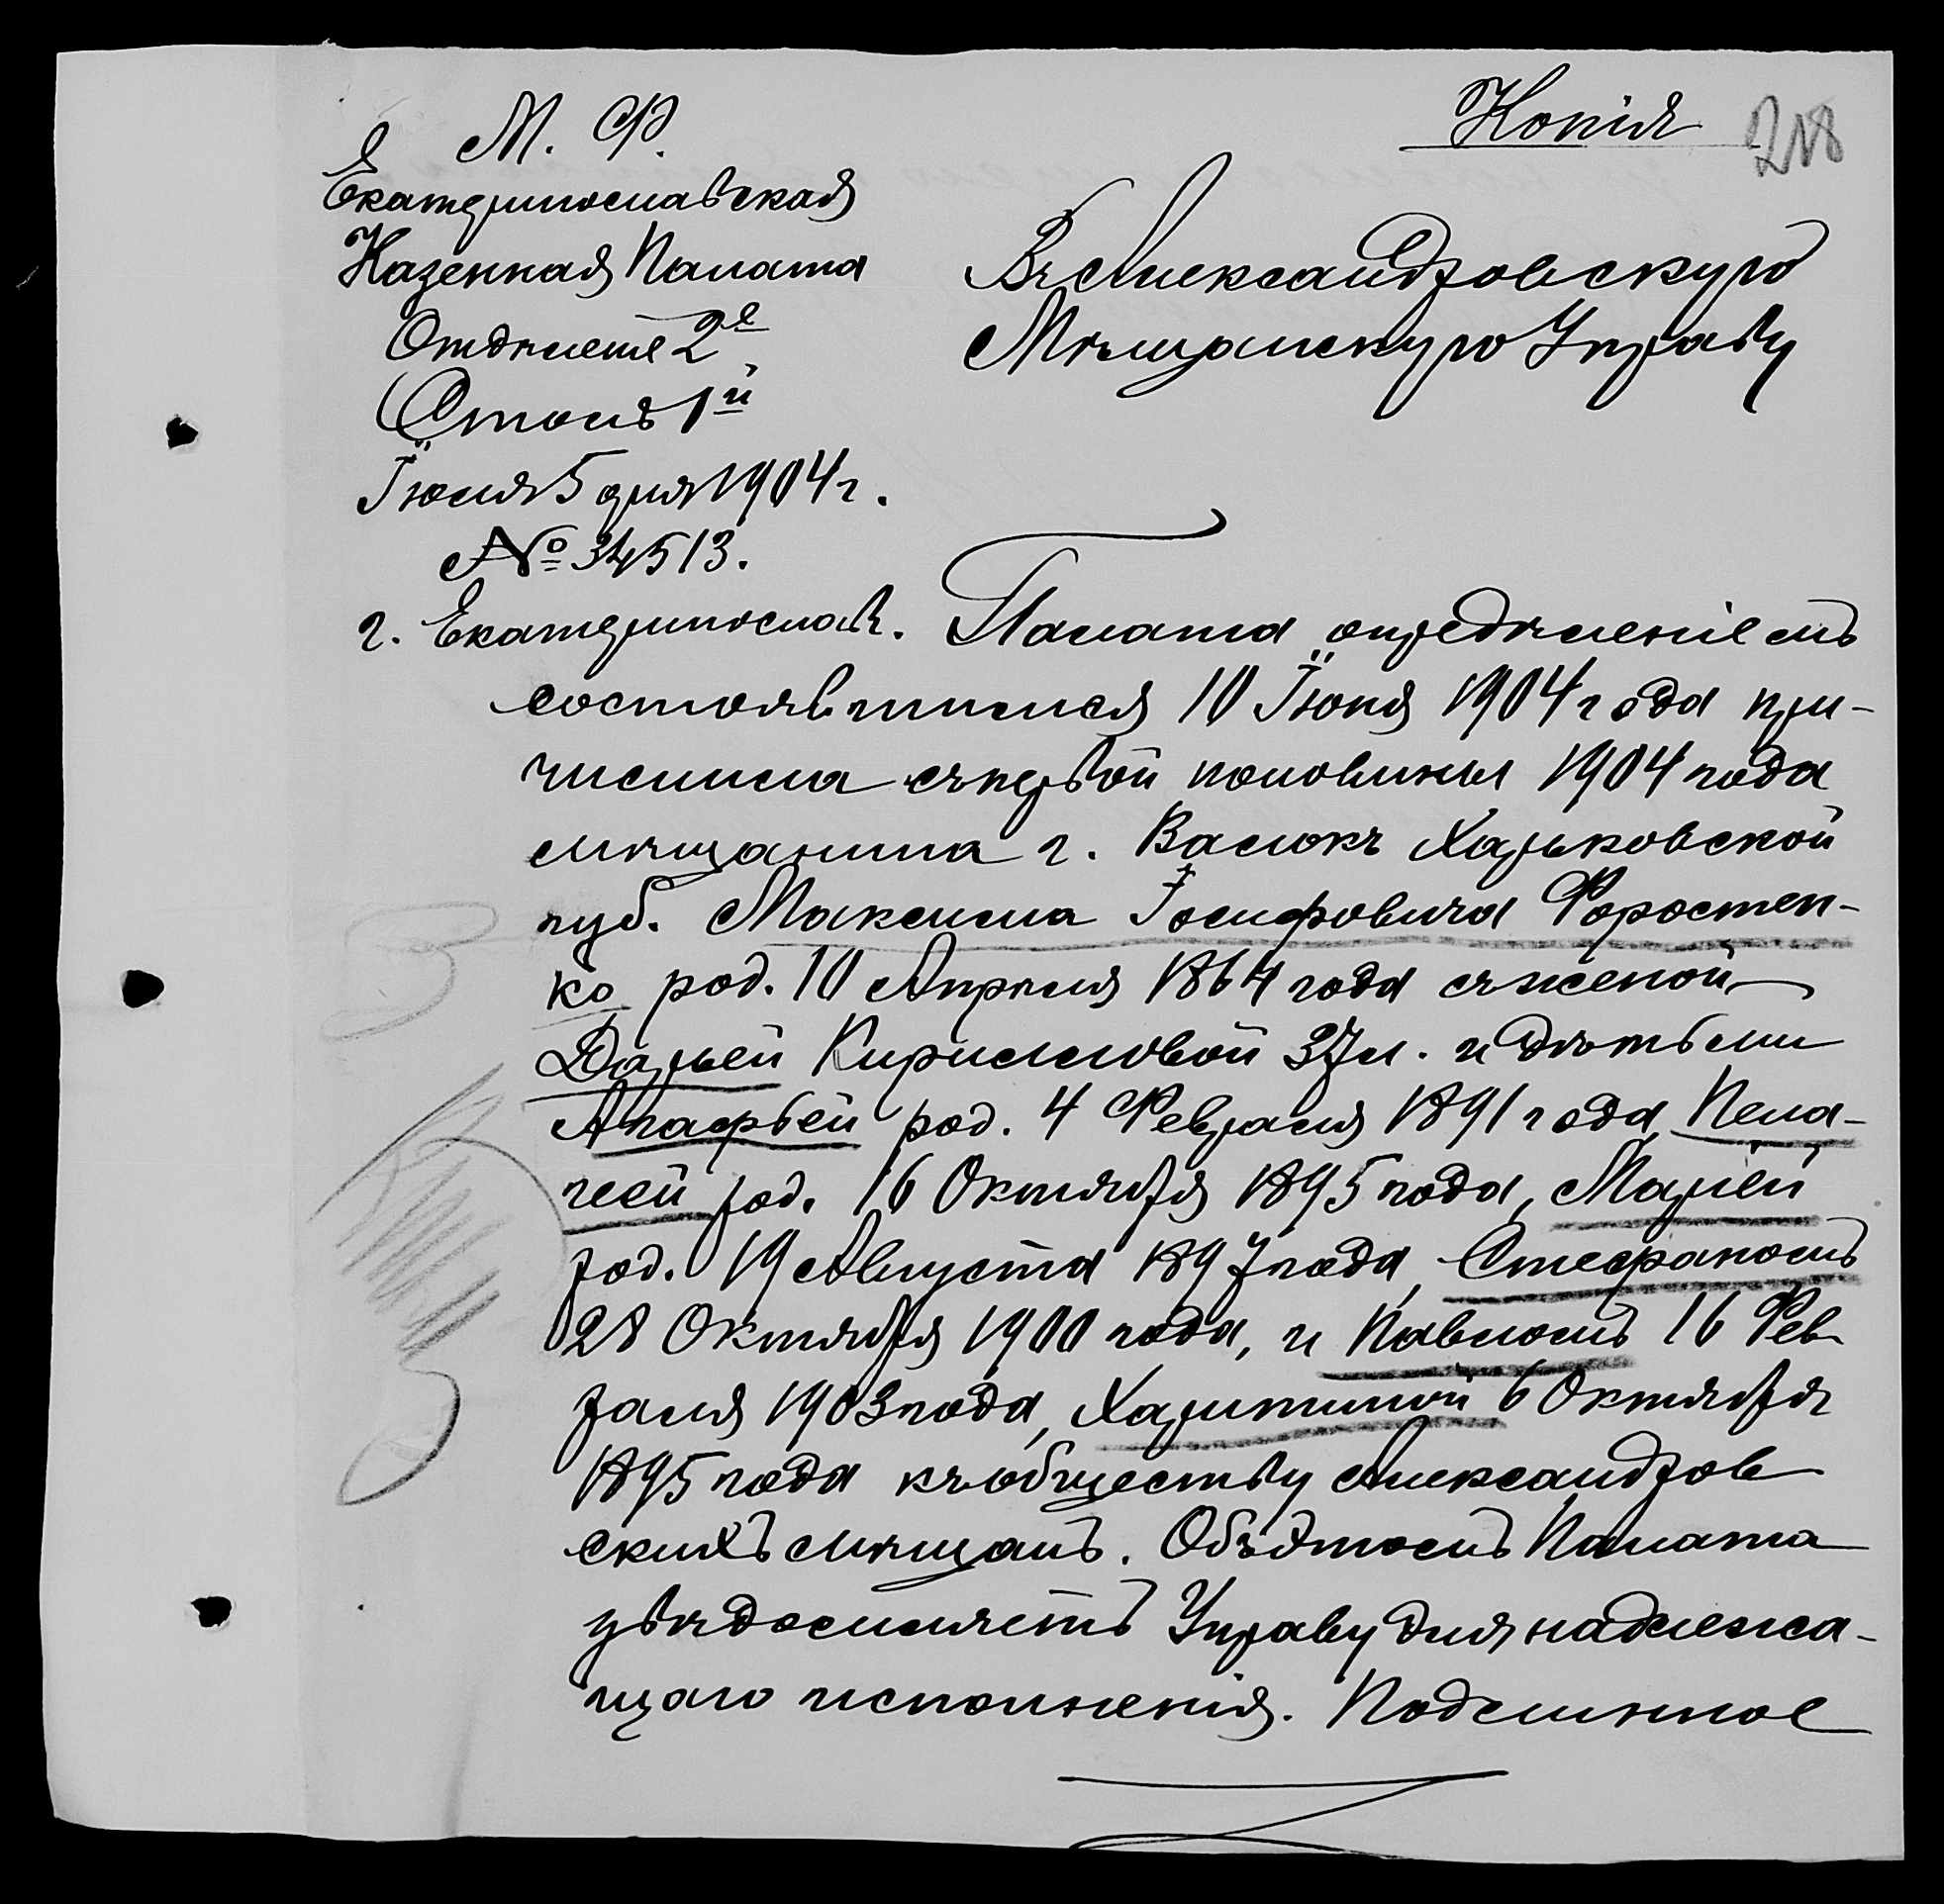 Копія
218
М. Ф.
Екатеринославская
Казенная Палата
Отдѣленіе 2е
Столъ 1й
Іюля 5 дня 1904 г.
№ 34513.
г. Екатеринославъ.
Въ Александровскую
Мѣщанскую Управу
Палата опредѣленіемъ
состоявшимся 10 Іюня 1904 года при-
числила съ первой половины 1904 года
мѣщанина г. Валокъ Харьковской
губ. Максима Іосифовича Форостен-
ко род. 10 Апрѣля 1864 года съ женой
Дарьей Кирилловой 37 л. и дѣтьми
Агафьей род. 4 Февраля 1891 года, Пела-
геей род. 16 Октября 1895 года, Маріей
род. 19 Августа 1897 года, Стефаномъ
28 Октября 1900 года, и Павломъ 16 Фев-
раля 1903 года, Харитиной 6 Октября
1895 года къ обществу Александров
скихъ мѣщанъ. Объ этомъ Палата
увѣдомляетъ Управу для надлежа-
щаго исполненія. Подлинное